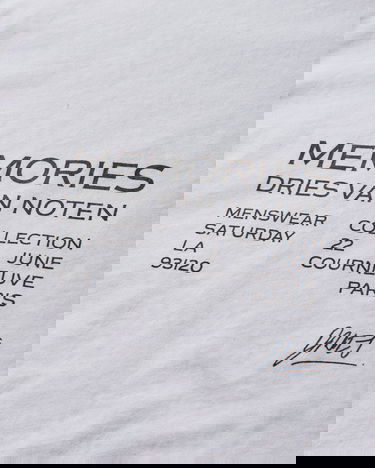 MEMORIES
DRIES VAN NOTEN
MENSWEAR COLLECTION
SATURDAY 22 JUNE
LA COURNEUVE
93120 PARIS